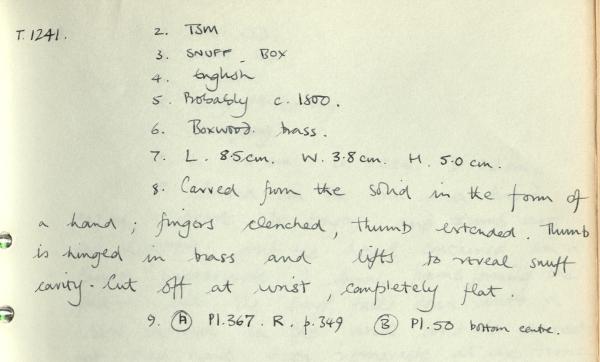 T.1241. 2. TSM
3. SNUFF - BOX
4. English
5. Probably c. 1800.
6. Boxwood. brass.
7. L. 8.5cm. W. 3.8cm. H. 5.0 cm.
8. Carved from the solid in the form of
a hand; fingers clenched, thumb extended. Thumb
is hinged in brass and lifts to reveal snuff
cavity. Cut off at wrist, completely flat.
9. (A) Pl.367. R. p.349 (B) Pl.50 bottom centre.